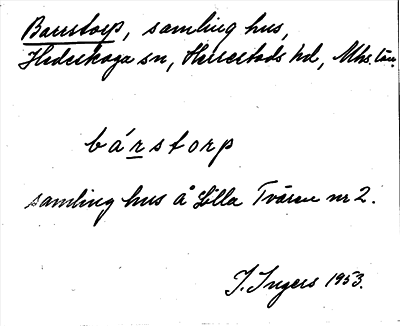 Barrstorp, samling hus,
Hedeskoga sn, Herrestads hd, Mhs. län
bárstorp
samling hus å Lilla Tvären nr 2.
I. Ingers 1953.